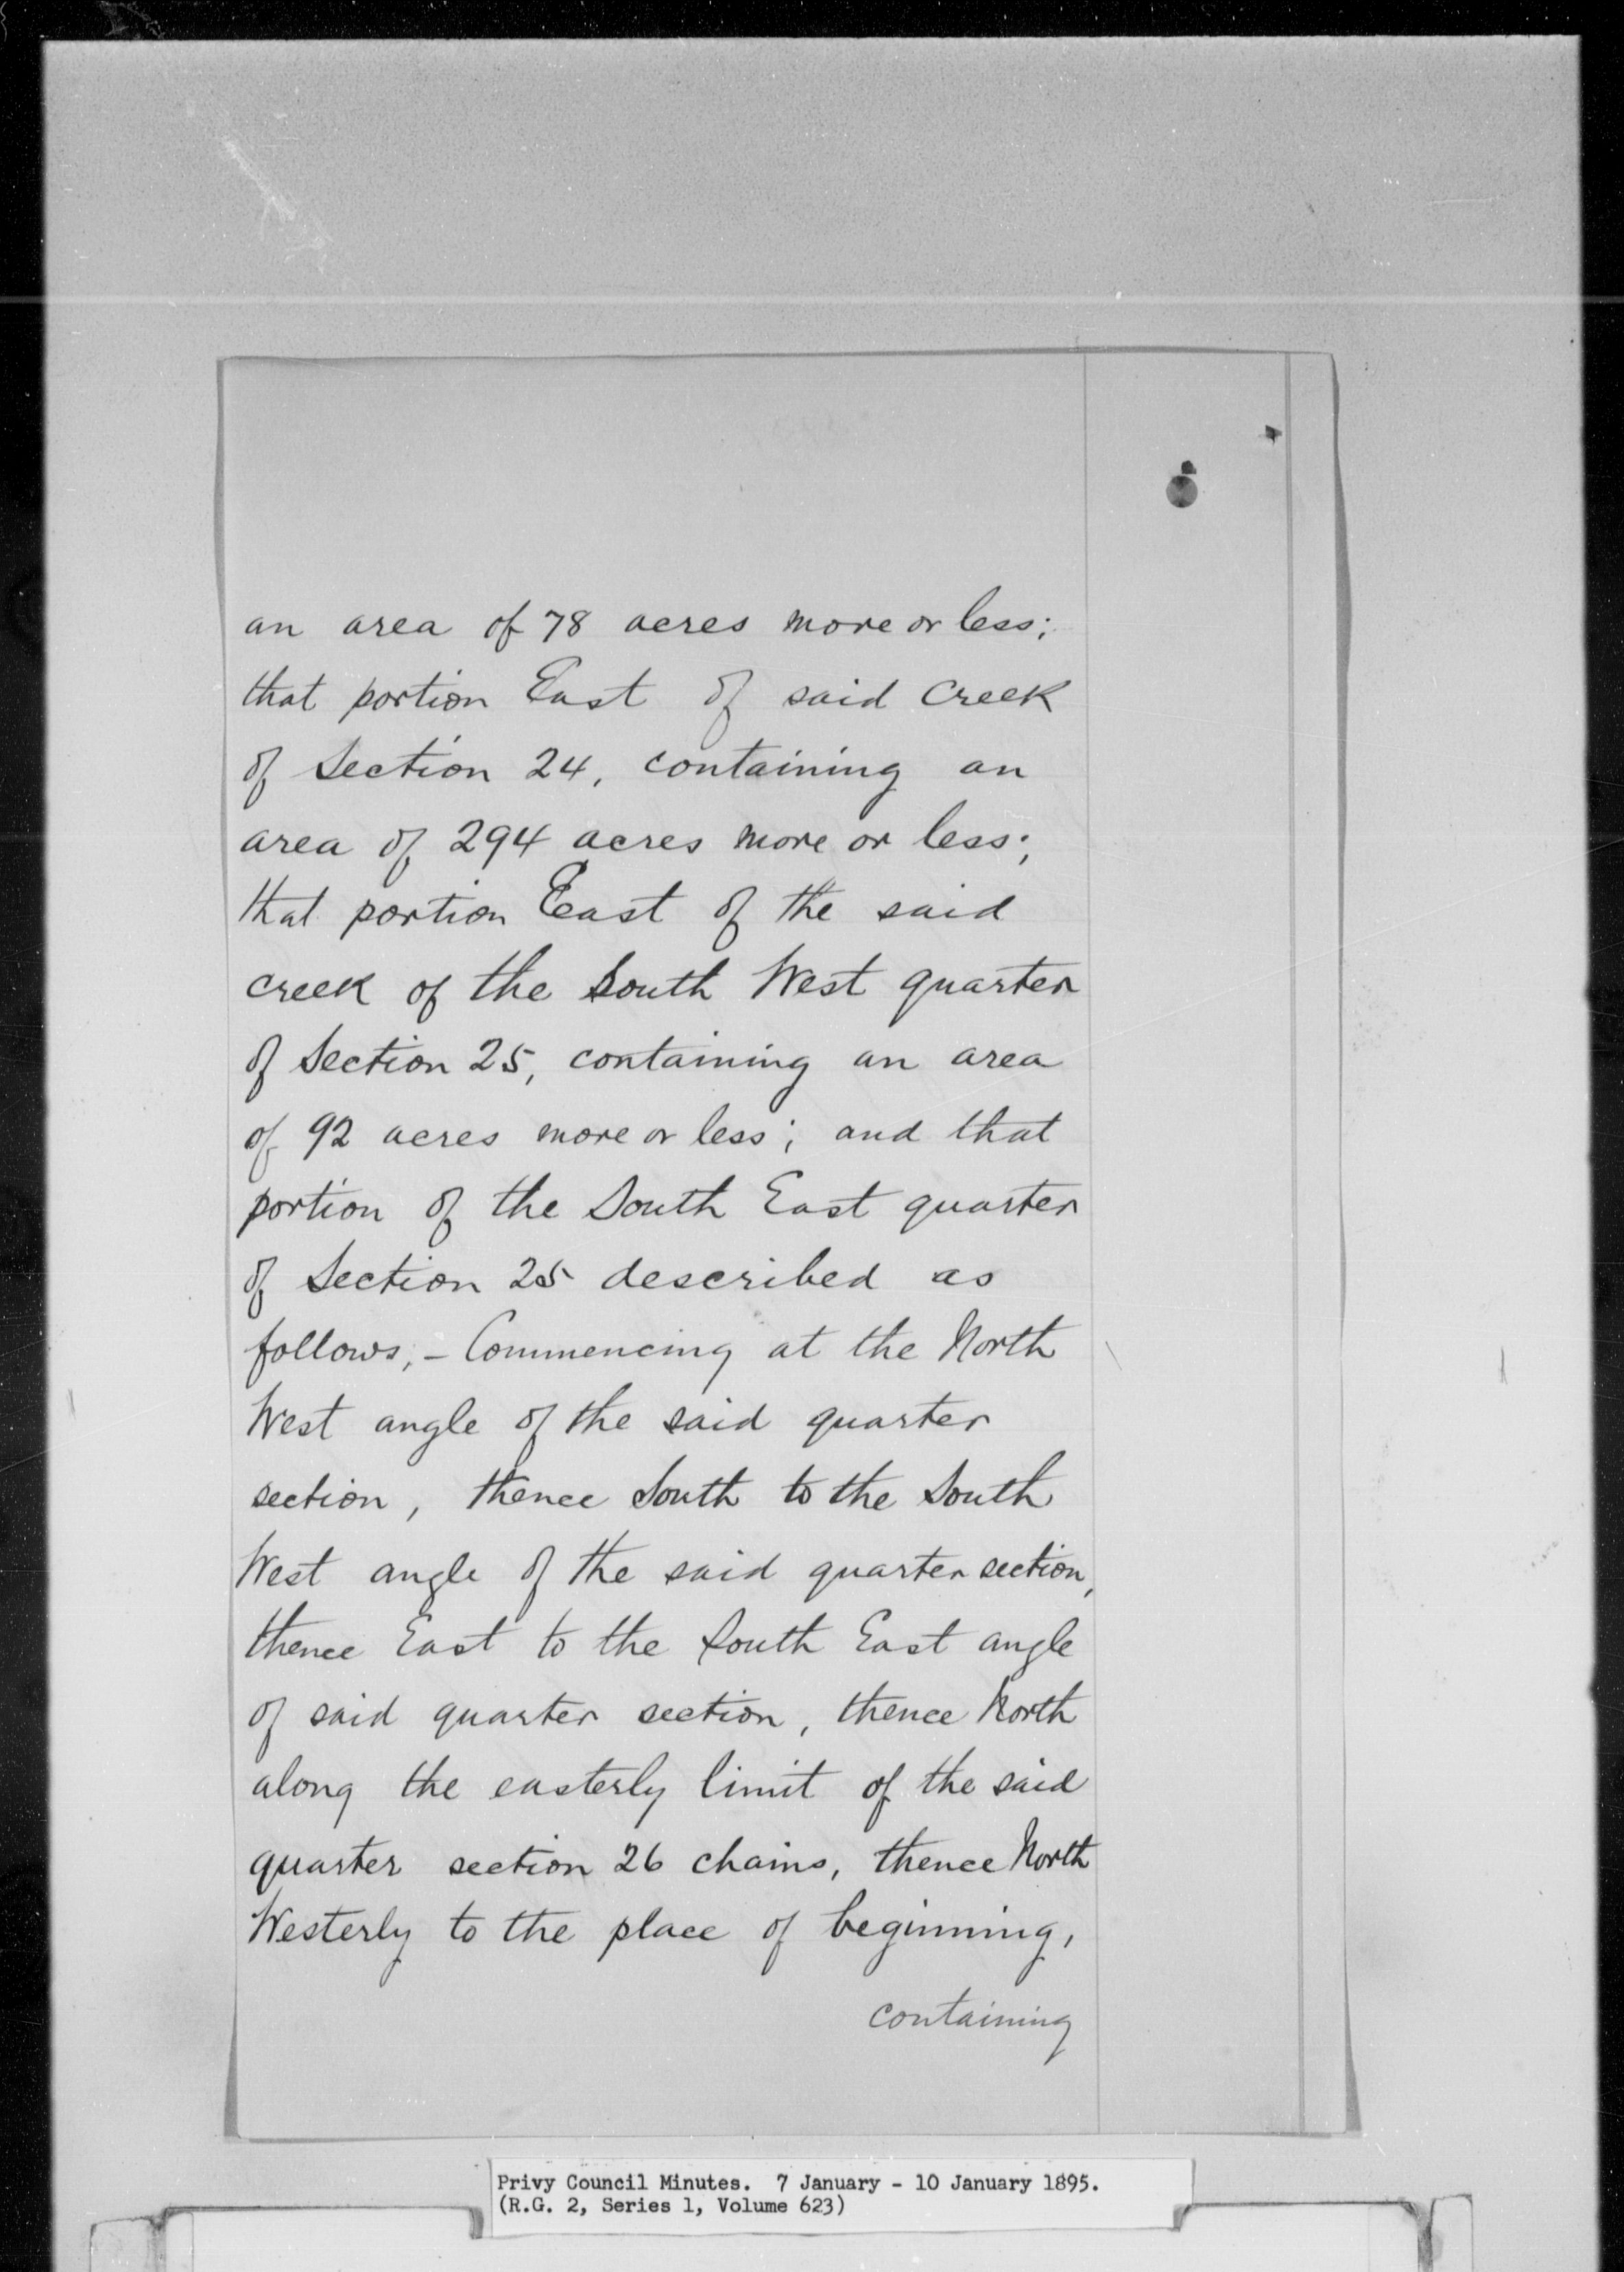 an area of 78 acres more or less;
that portion East of said Creek
of Section 24, containing an
area of 294 acres more or less;
that portion East of the said
creek of the South West quarter
of Section 25, containing an area
of 92 acres more or less; and that
portion of the South East quarter
of Section 25 described as
follows, - Commencing at the North
West angle of the said quarter
section, thence South to the South
West angle of the said quarter section,
thence East to the South East angle
of said quarter section, thence North
along the easterly limit of the said
quarter section 26 chains, thence North
Westerly to the place of beginning,
containing
Privy Council Minutes. 7 January - 10 January 1895.
(R.G. 2, Series 1, Volume 623)